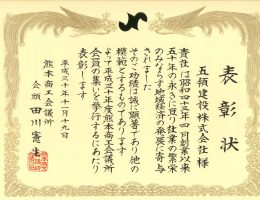 表彰状
五領建設株式会社 様
貴社は昭和四十三年四月創業以来
五十年の永きに亘り社業の繁栄
のみならず地域経済の発展に寄与
されました
そのご功績は誠に顕著であり他の
模範とするものであります
よって平成三十年度熊本商工会議所
会員の集いを挙行するにあたり
表彰します
平成三十年十一月十九日
熊本商工会議所
会頭 田川憲生